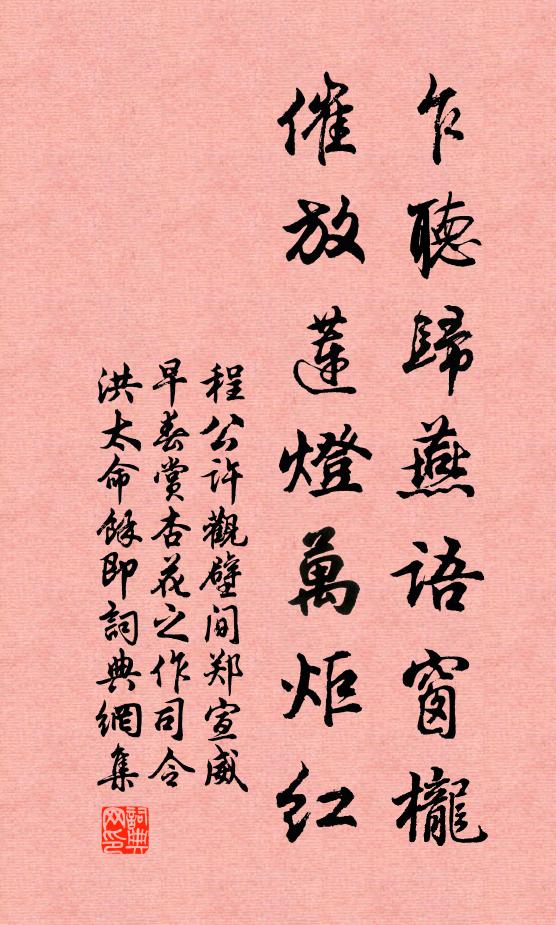 乍聽歸燕語窗櫳
催放蓮燈萬炬紅
程公許觀壁间郑宣威
早春賞杏花之作司令
洪太命餘即詞典網集
詞典
网印